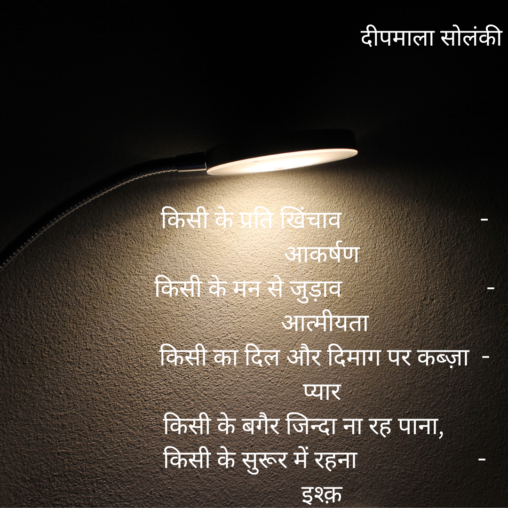 दीपमाला सोलंकी
किसी के प्रति खिंचाव -
आकर्षण
किसी के मन से जुड़ाव -
आत्मीयता
किसी का दिल और दिमाग पर कब्ज़ा -
प्यार
किसी के बगैर जिन्दा ना रह पाना,
किसी के सुरूर में रहना -
इश्क़